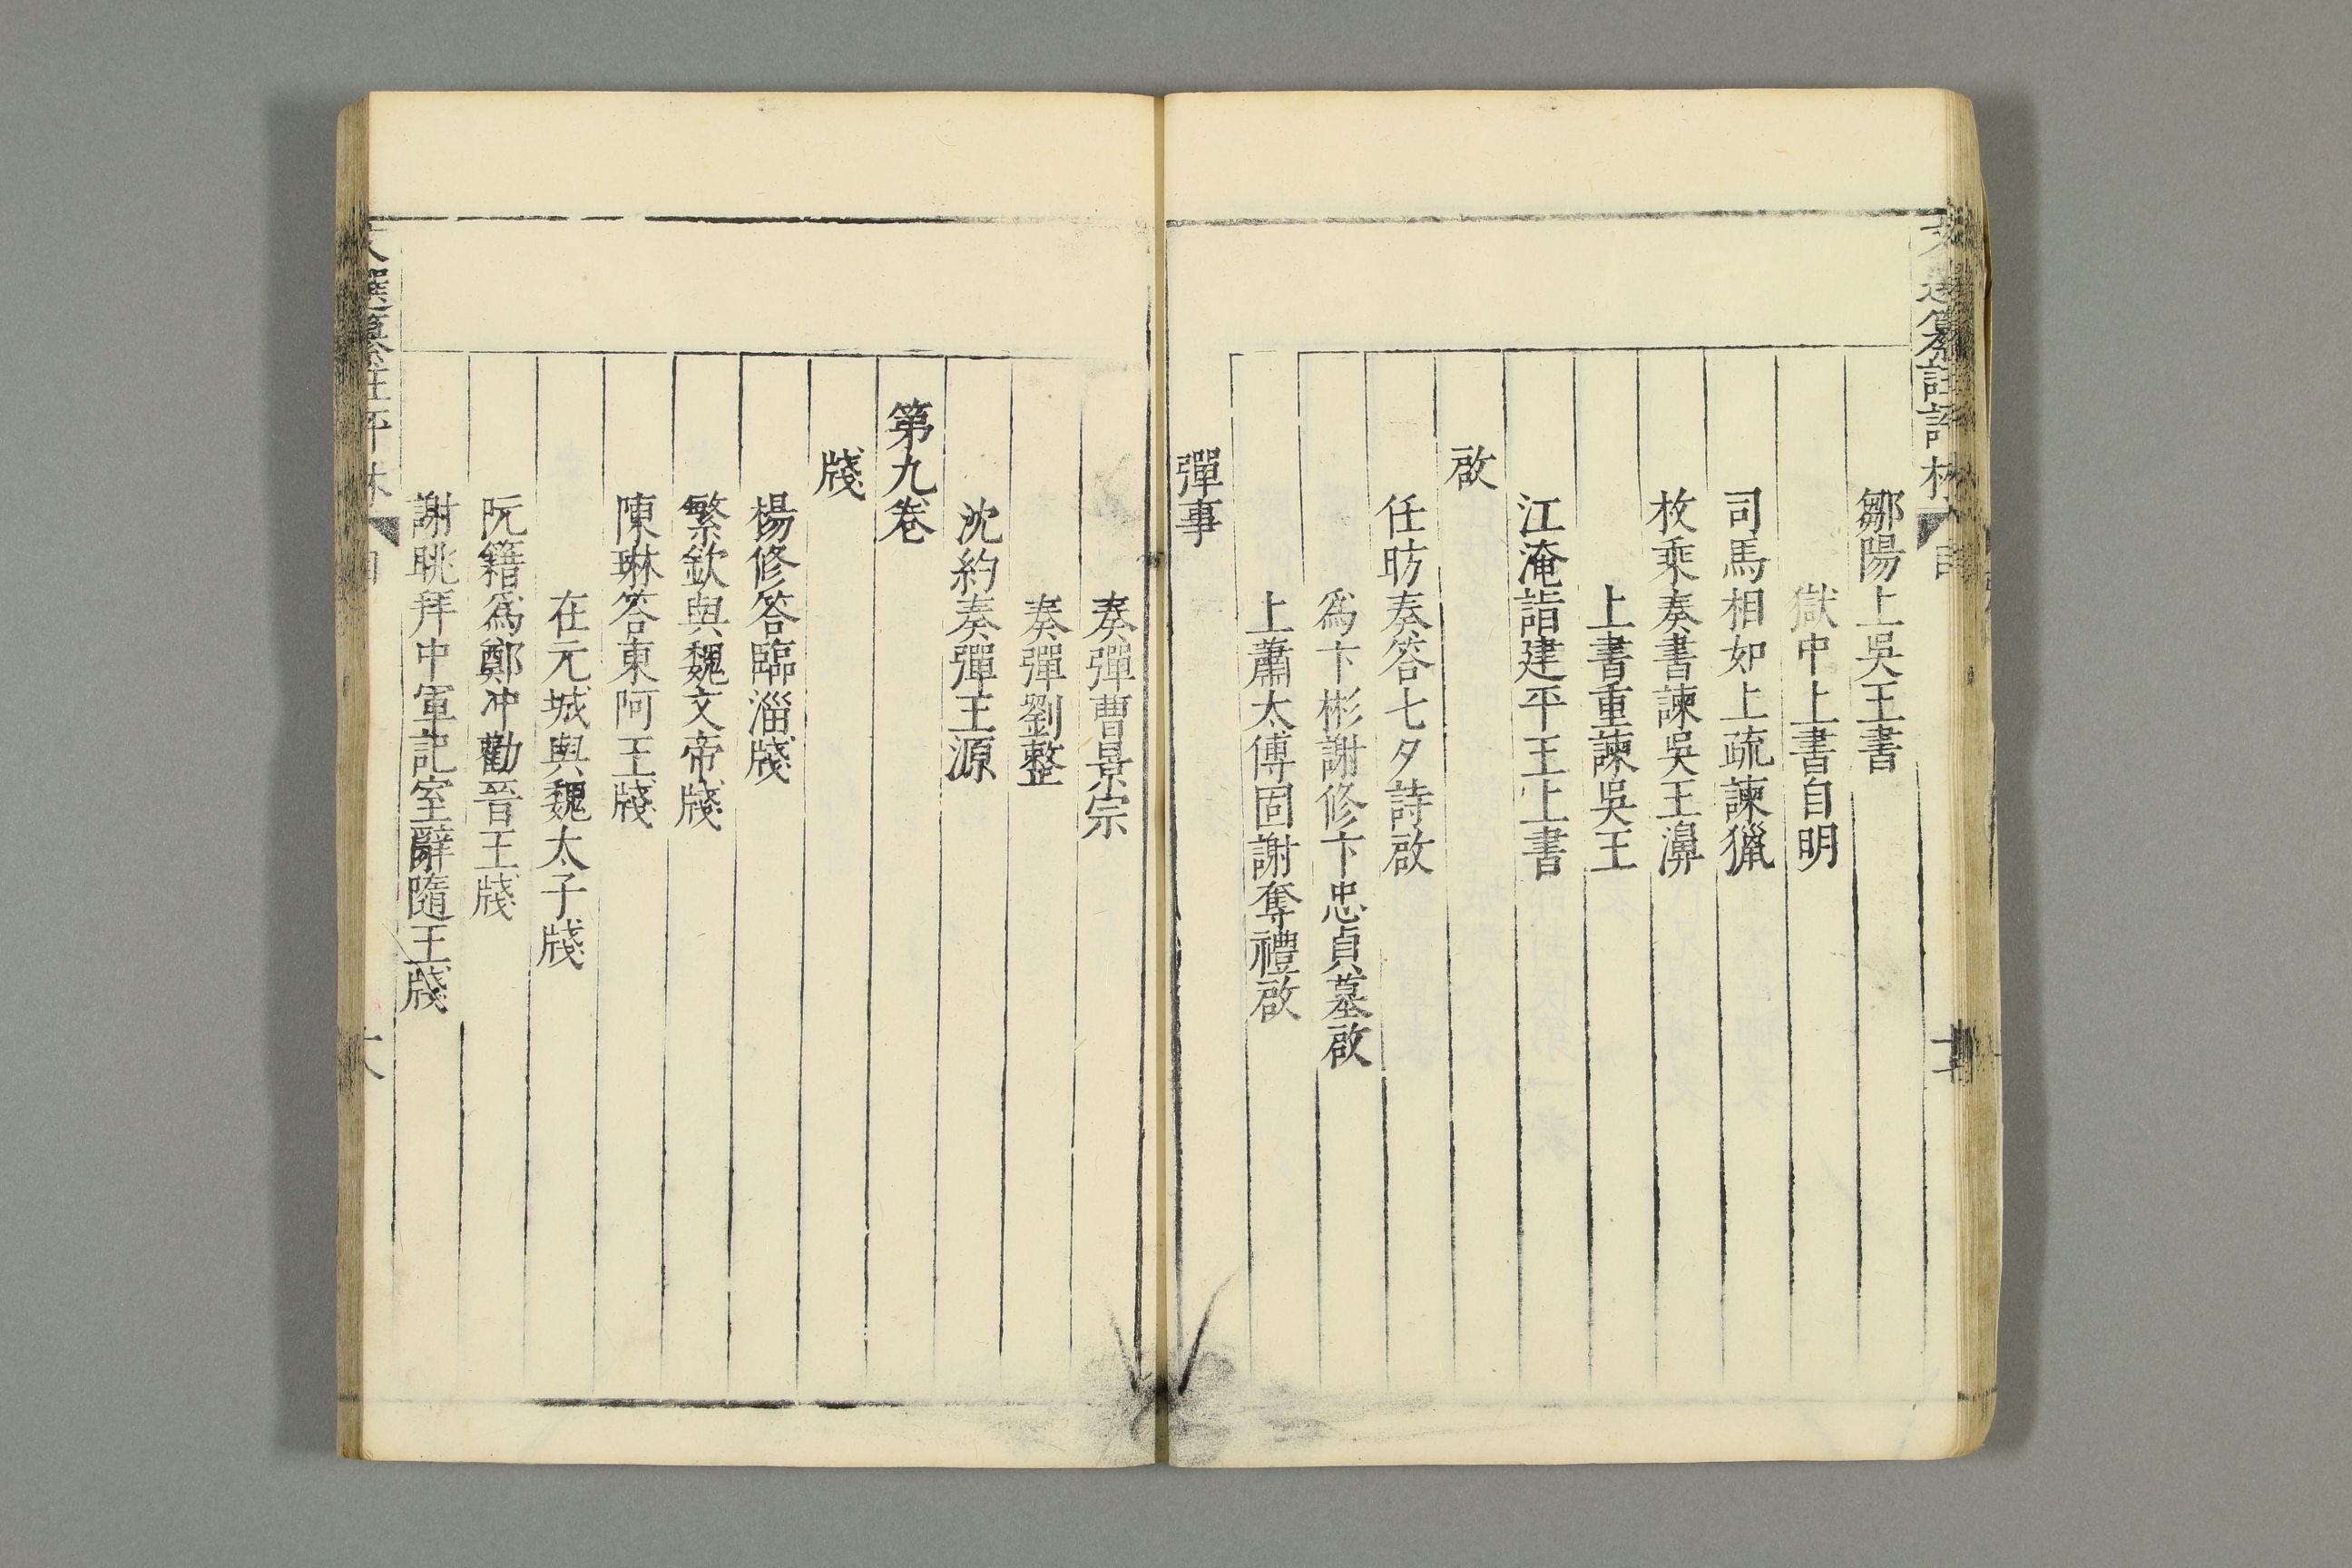 文選纂註評林
鄒陽上吳王書
獄中上書自明
司馬相如上疏諫獵
枚乘奏書諫吳王濞
上書重諫吳王
江淹詣建平王上書
啟
任昉奏答七夕詩啟
爲卞彬謝修卞忠貞墓啟
上蕭太傅固謝奪禮啟
彈事
奏彈曹景宗
奏彈劉整
沈約奏彈王源
第九卷
牋
楊修答臨淄牋
繁欽與魏文帝牋
陳琳答東阿王牋
在元城與魏太子牋
阮籍爲鄭冲勸晉王牋
謝朓拜中軍記室辭隨王牋
選纂註評林